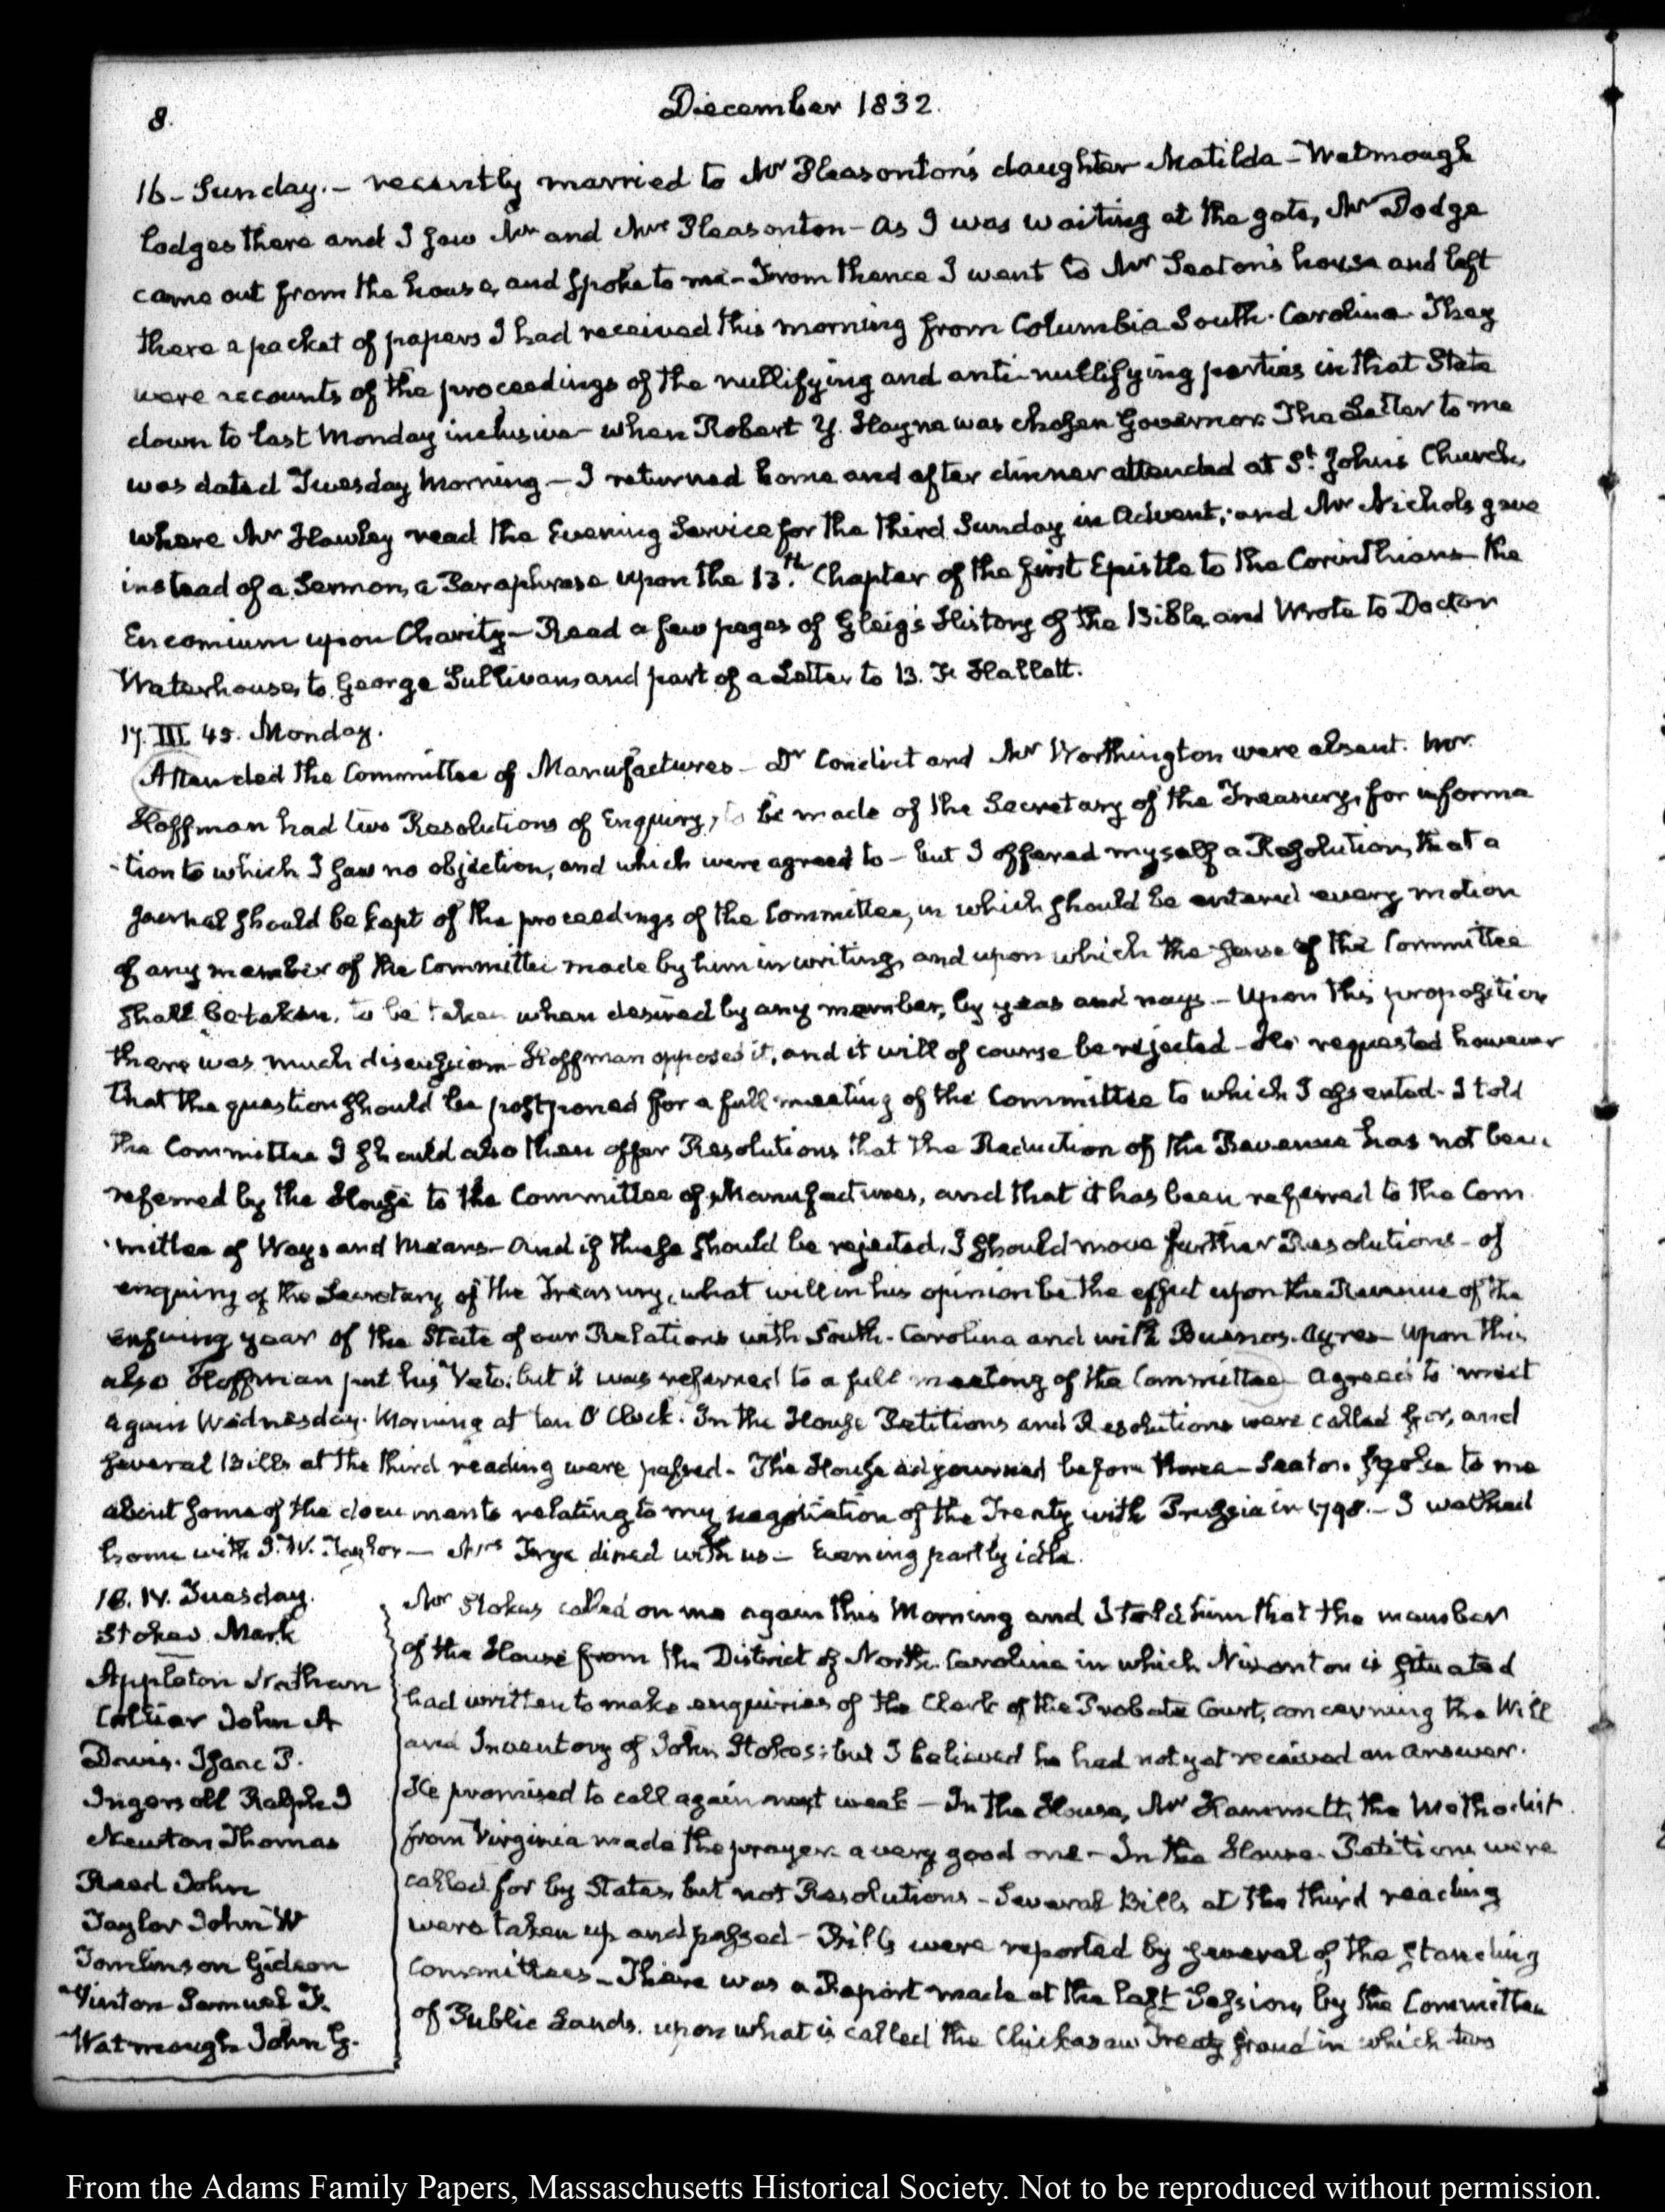 8.
December 1832.
16 - Sunday. - recently married to Mr Pleasonton's daughter Matilda - Watmough
lodges there and I saw Mr and Mrs Pleasonton - As I was waiting at the gate, Mr Dodge
came out from the house, and spoke to me - From thence I went to Mr Seaton's house and left
there a packet of papers I had received this morning from Columbia South-Carolina. They
were accounts of the proceedings of the nullifying and anti-nullifying parties in that State
down to last Monday inclusive - when Robert Y. Hayne was chosen Governor. The Letter to me
was dated Tuesday Morning - I returned home and after dinner attended at St. John's Church,
where Mr Hawley read the Evening Service for the third Sunday in Advent; and Mr Nichols gave
instead of a Sermon, a Paraphrase upon the 13.th Chapter of the first Epistle to the Corinthians the
Encomium upon Charity - Read a few pages of Gleig's History of the Bible, and Wrote to Doctor
Waterhouse, to George Sullivan, and part of a Letter to B. F. Hallett.
17. III 45. Monday.
Attended the Committee of Manufactures - Dr Condict and Mr Worthington were absent. Mr.
Hoffman had two Resolutions of Enquiry, to be made of the Secretary of the Treasury, for informa
-tion to which I saw no objection, and which were agreed to - but I offered myself a Resolution, that a
Journal should be kept of the proceedings of the Committee, in which should be entered every motion
of any member of the Committee made by him in writing, and upon which the sense of the Committee
shall be taken, to be taken when desired by any member, by yeas and nays - Upon this proposition
there was much discussion - Hoffman opposed it, and it will of course be rejected - He requested however
that the question should be postponed for a full meeting of the Committee to which I assented - I told
the Committee I should also then offer Resolutions that the Reduction of the Revenue has not been
referred by the House to the Committee of Manufactures, and that it has been referred to the Com
-mittee of Ways and Means - And if these should be rejected, I should move further Resolutions - of
enquiry of the Secretary of the Treasury, what will in his opinion be the effect upon the Revenue of the
ensuing year of the State of our Relations with South-Carolina and with Buenos-Ayres - Upon this
also Hoffman put his Veto: but it was referred to a full meeting of the Committee - Agreed to meet
again Wednesday Morning at ten O'Clock. In the House Petitions and Resolutions were called for, and
several Bills at the third reading were passed - The House adjourned before three - Seaton spoke to me
about some of the documents relating to my negotiation of the Treaty with Prussia in 1798. - I walked
home with J. W. Taylor - Mrs Frye dined with us - Evening partly idle.
18. IV. Tuesday.
Stokes Mark
Appleton Nathan
Collier John A
Davis. Isaac P.
Ingersoll Ralph I
Newton Thomas
Reed John
Taylor John W
Tomlinson Gideon
Vinton Samuel F.
Watmough John G.
Mr Stokes called on me again this Morning and I told him that the member
of the House from the District of North-Carolina in which Nixonton is situated
had written to make enquiries of the Clerk of the Probate Court, concerning the Will
and Inventory of John Stokes; but I believed he had not yet received an answer.
He promised to call again next week - In the House, Mr Hammett, the Methodist
from Virginia made the prayer. a very good one - In the House. Petitions were
called for by States, but not Resolutions - Several Bills at the third reading
were taken up and passed - Bills were reported by several of the standing
Committees - There was a Report made at the last Session, by the Committee
of Public Lands. upon what is called the Chickasaw Treaty fraud in which two
From the Adams Family Papers, Massachusetts Historical Society. Not to be reproduced without permission.